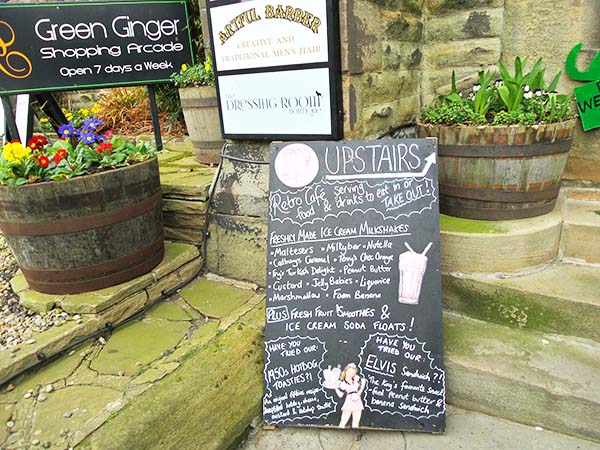 Green Ginger
Shopping Arcade
Open 7 days a Week
ARTFUL BARBER
CREATIVE AND
TRADITIONAL MEN'S HAIR
THE
DRESSING ROOM
UPSTAIRS
Retro Café serving
food & drinks to eat in or
TAKE OUT!
FRESHLY MADE ICE CREAM MILKSHAKES
• Maltesers • Milkybar • Nutella
• Cadbury's Caramel • Terry's Choc Orange
• Fry's Turkish Delight • Peanut Butter
• Custard • Jelly Babies • Liquorice
• Marshmallow • Foam Banana
PLUS FRESH FRUIT SMOOTHIES &
ICE CREAM SODA FLOATS!
HAVE YOU
TRIED OUR
1950s HOTDOG
TOASTIES?!
HAVE YOU
TRIED OUR
ELVIS Sandwich??
The King's favourite snack
fried Peanut butter &
banana sandwich
WE